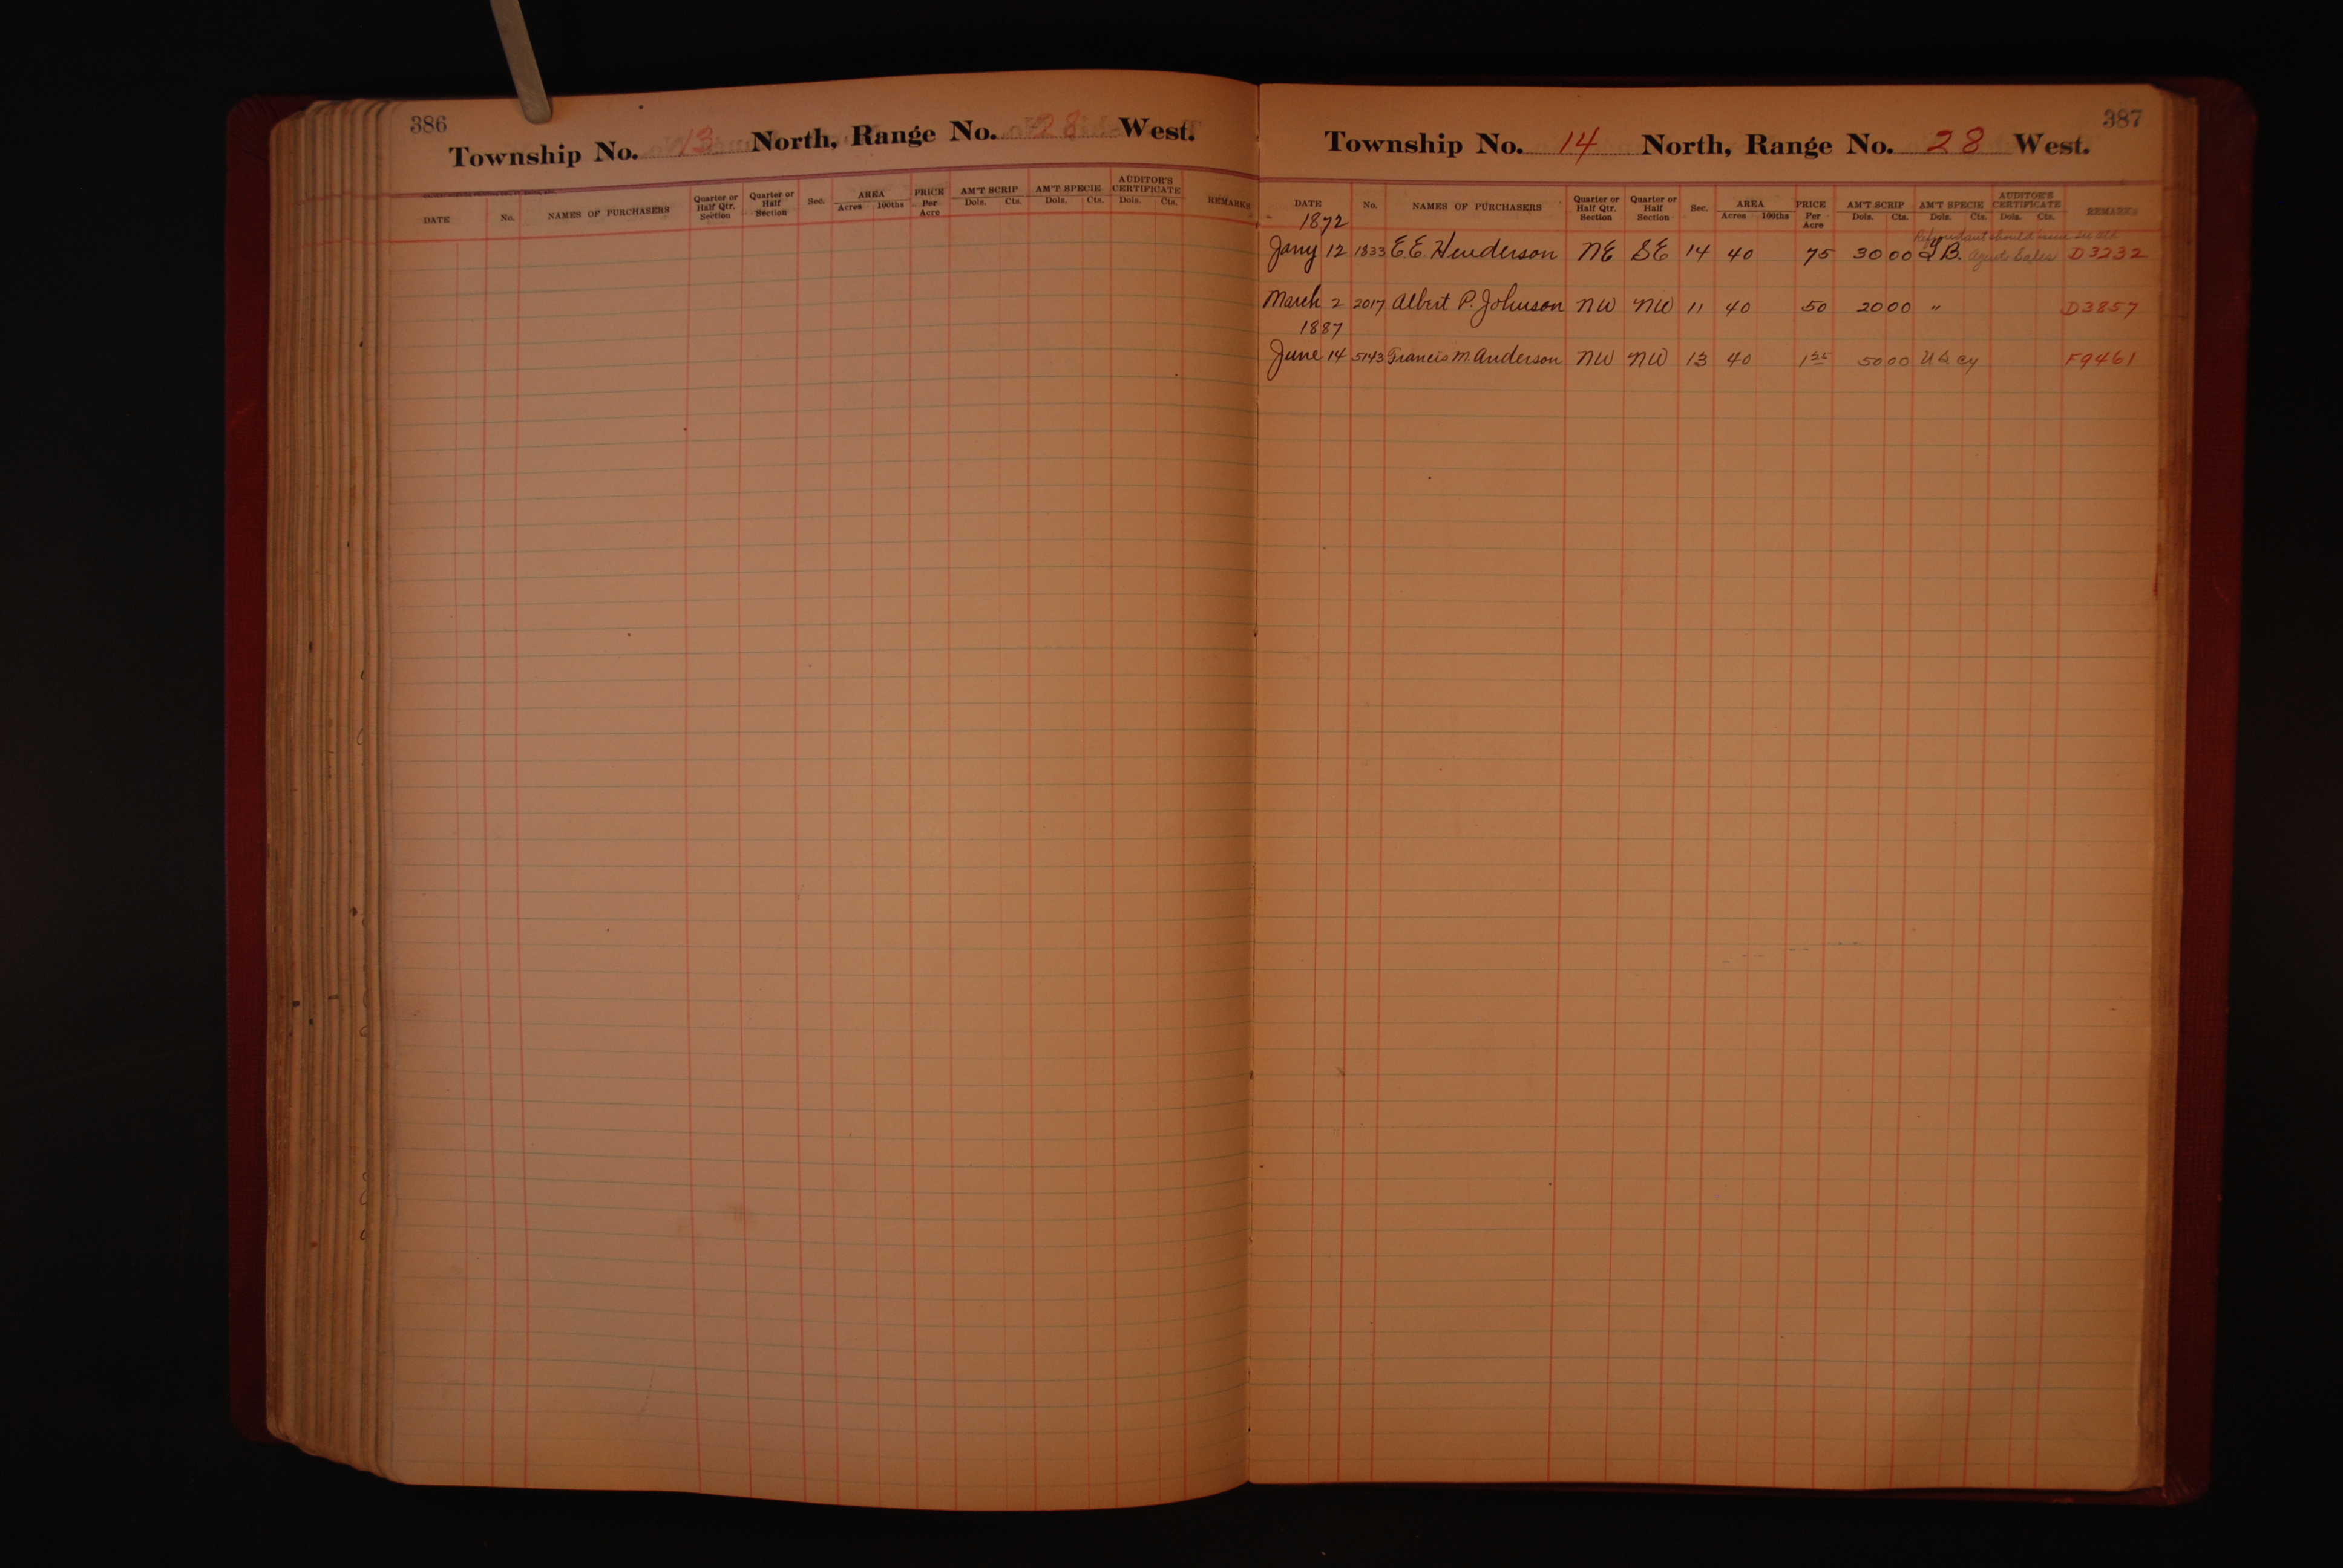 386
Township No. 13 North, Range No. 28 West.
DATE No. NAMES OF PURCHASERS Quarter or Half Qtr. Section Quarter or Half Section Sec. AREA Acres 100ths PRICE Per Acre AM'T SCRIP Dols. Cts. AM'T SPECIE Dols. Cts. AUDITOR'S CERTIFICATE Dols. Cts. REMARKS
387
Township No. 14 North, Range No. 28 West.
DATE No. NAMES OF PURCHASERS Quarter or Half Qtr. Section Quarter or Half Section Sec. AREA Acres 100ths PRICE Per Acre AM'T SCRIP Dols. Cts. AM'T SPECIE Dols. Cts. AUDITOR'S CERTIFICATE Dols. Cts. REMARKS
1872
should see
Jany 12 1833 E.E. Henderson NE SE 14 40 75 30 00 B. Agent Sales D3232
March 2 2017 Albert P. Johnson NW NW 11 40 50 20 00 " D3857
1887
June 14 5143 Francis M Anderson NW NW 13 40 1 25 50 00 U S Cy F9461